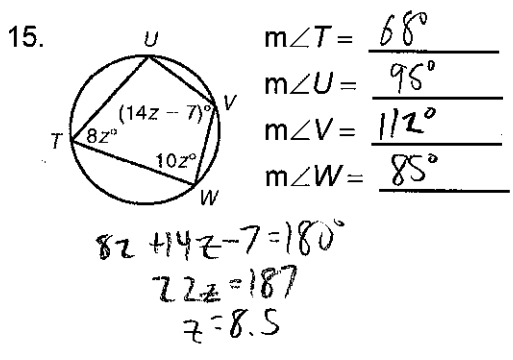 15.
U
V
T
W
(14z – 7)°
8z°
10z°
m∠T = 68°
m∠U = 95°
m∠V = 112°
m∠W = 85°
8z + 14z - 7 = 180°
22z = 187
z = 8.5